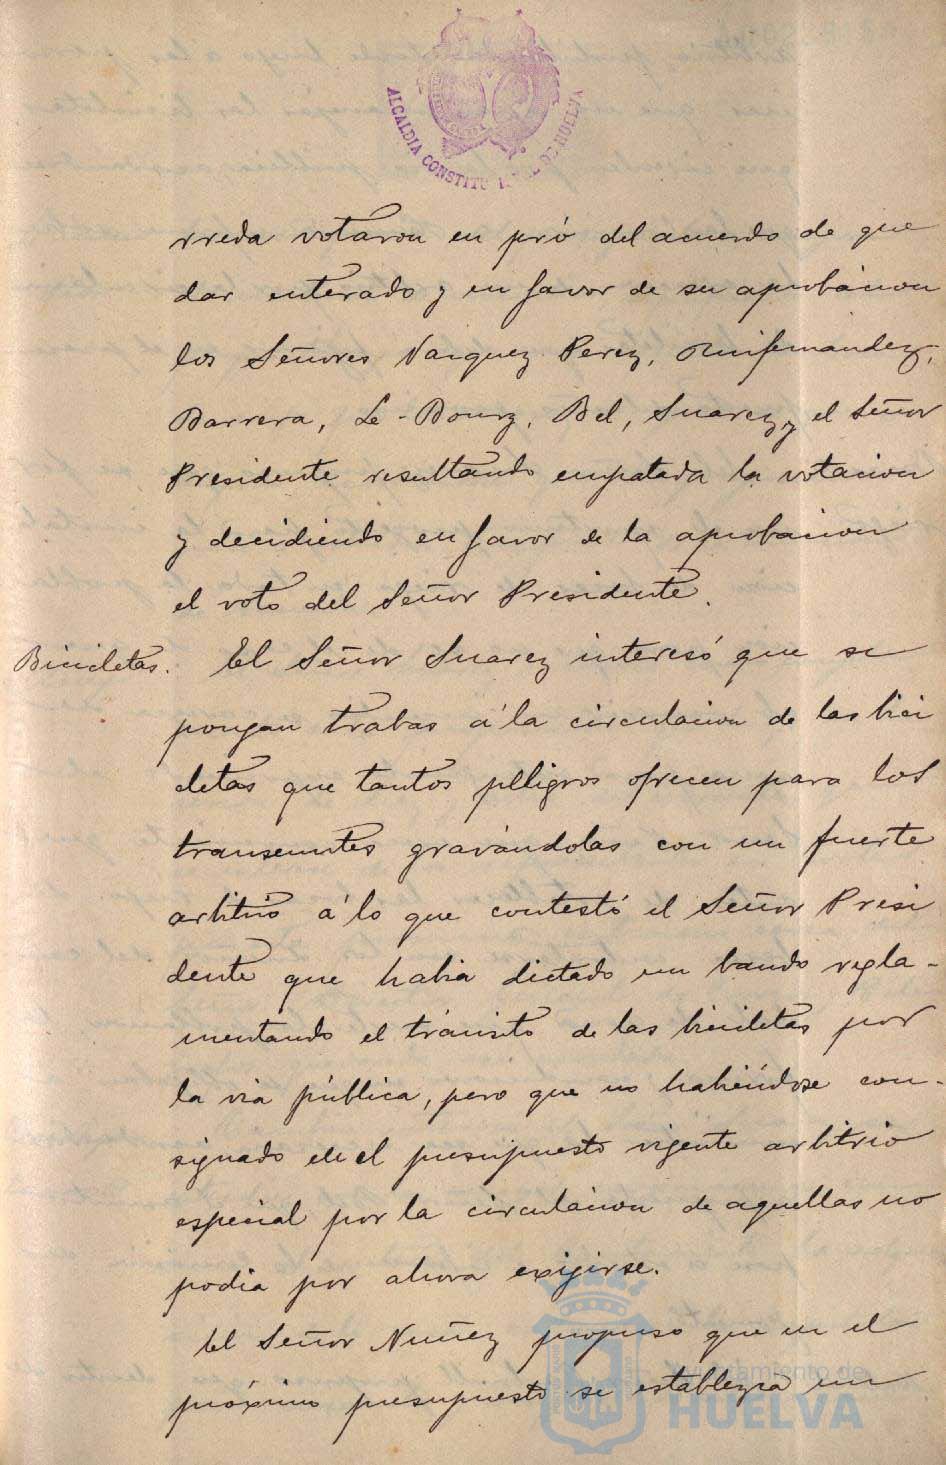 ALCALDIA CONSTITU L DE HUELVA
rreda votaron en pró del acuerdo de que
dar enterado y en favor de su aprobacion
los Señores Vazquez Perez,
Barrera, Le-Bourg, Bel, Suarez y el Señor
Presidente resultando empatada la votacion
y decidiendo en favor de la aprobacion
el voto del Señor Presidente.
Bicicletas. El Señor Suarez interesó que se
pongan trabas á la circulacion de las bici
cletas que tantos plligros ofrecen para los
transeuntes gravándolas con un fuerte
arbitrio á lo que contestó el Señor Presi
dente que habia dictado un bando regla-
mentando el tránsito de las bicicletas por
la via pública, pero que no habiéndose con-
signado en el presupuesto vigente arbitrio
especial por la circulacion de aquellas no
podia por ahora exijirse.
El Señor Nuñez propuso que en el
próximo presupuesto se establezca un
Ayuntamiento de
HUELVA